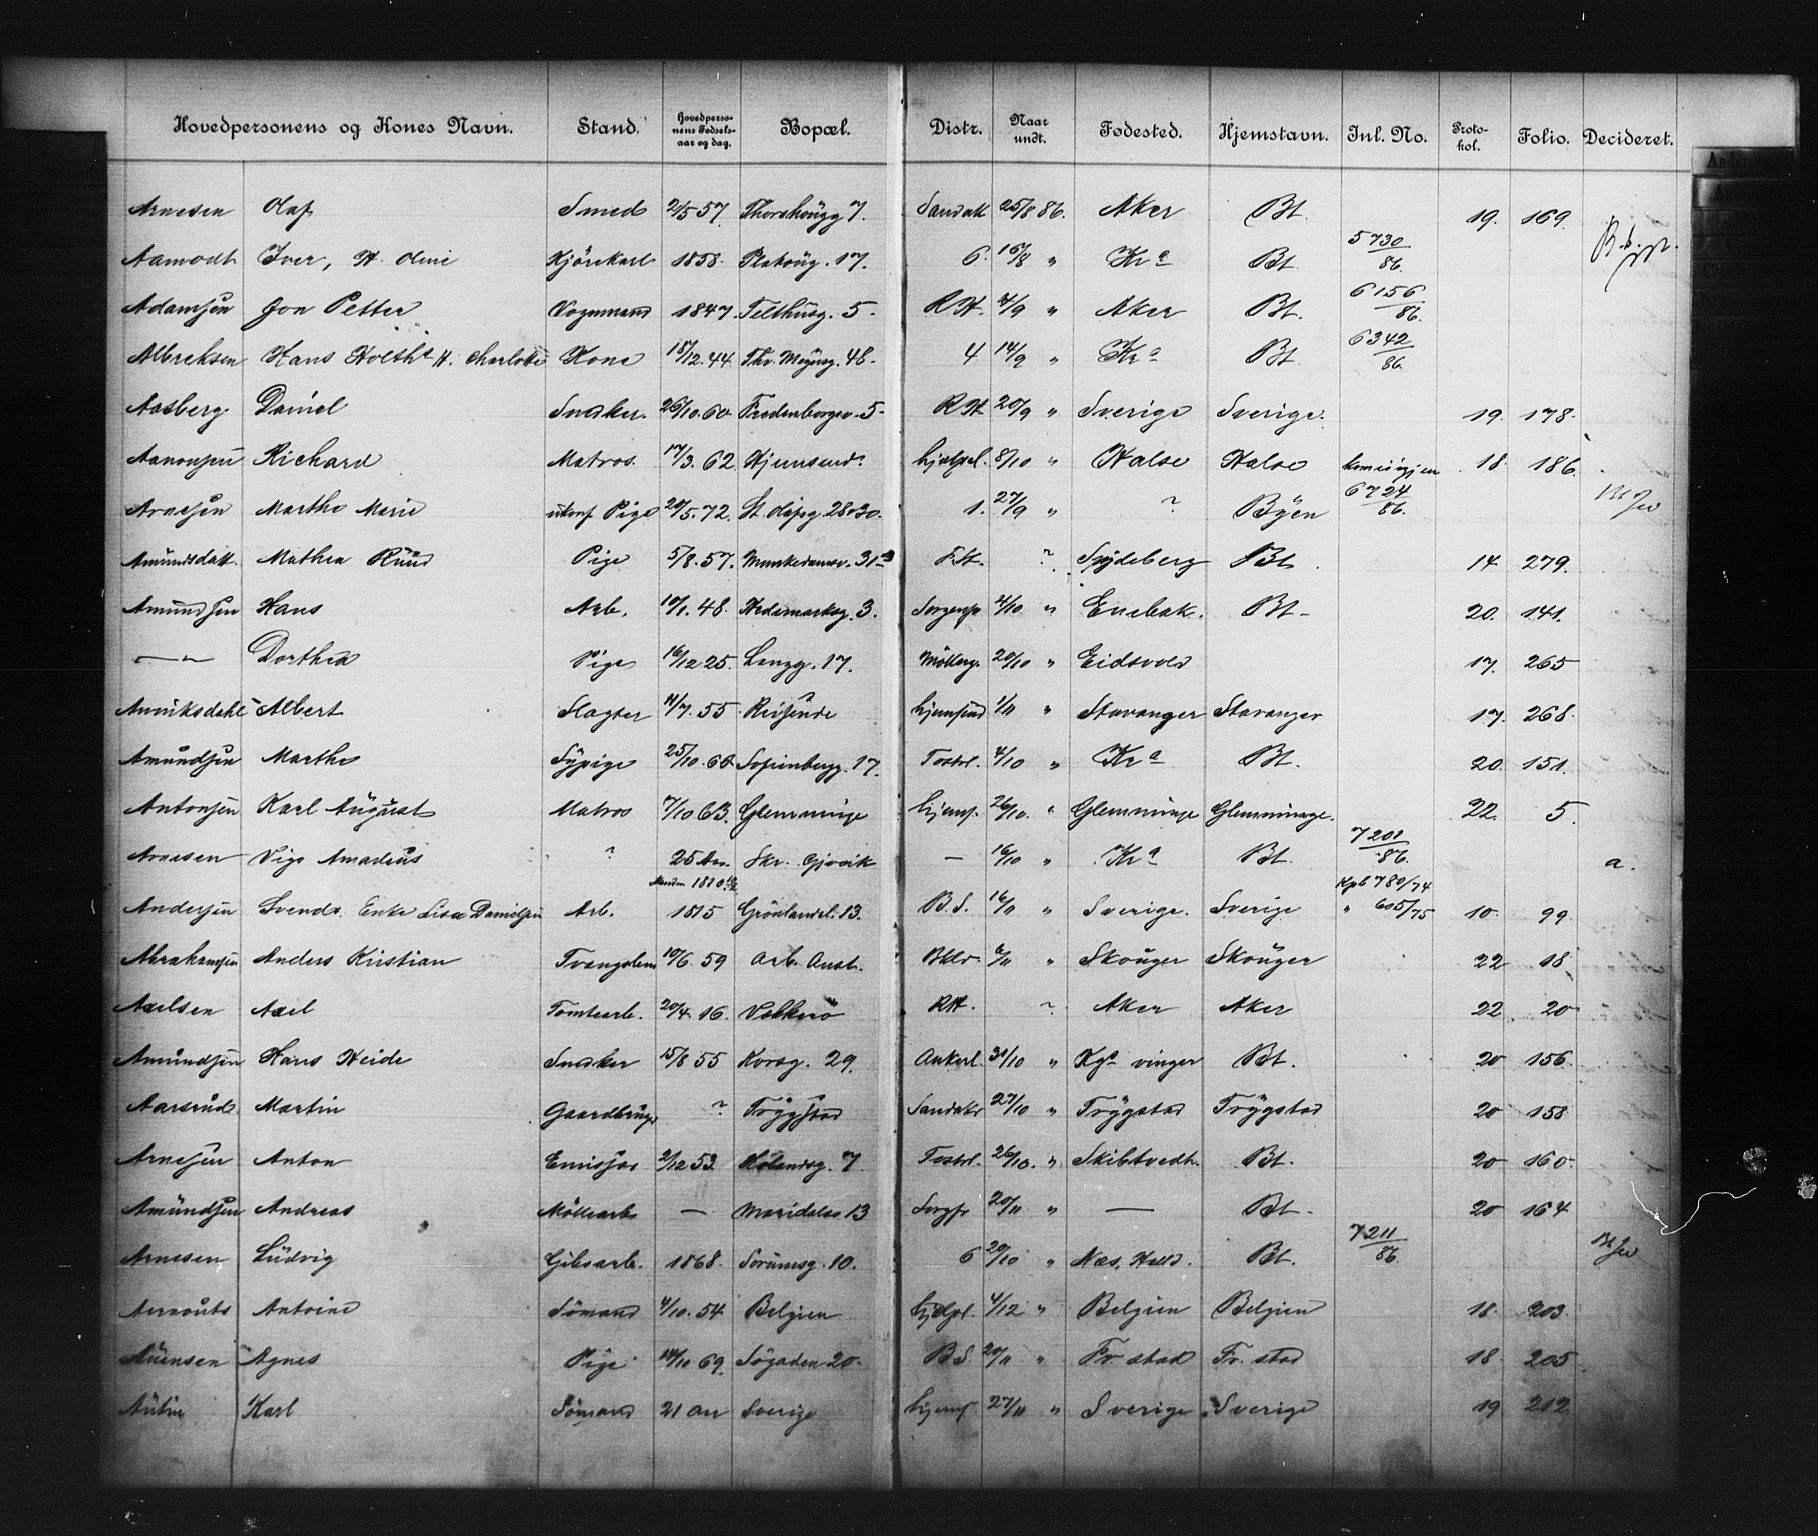 Hovedpersonens og Kones Navn. Stand. Hovedperso-nens Fødsels-aar og dag. Bopæl. Distr. Naar undt. Fødested. Hjemstavn. Inl. No. Proto-kol. Folio. Decideret.
Arnesen Olaf Smed 2/5 57. Thorshougg 7. Sandak 25/8 86. Aker Bt. 19. 169.
Aamodt Iver, H. Oline Kjørekarl 1858. Platoug. 17. 6. 16/8 " Kra Bt. 5730/86.
Adamsen Jon Petter Vognmand 1847. Telthusg. 5. R.H. 4/9 " Aker Bt. 6156/86.
Albreksen Hans Holth H. Charlotte Kone 18/12. 44. Thv. Meyersg. 48. 4 14/9 " Kra Bt. 6342/86.
Aasberg Daniel Snedker. 26/10. 60. Fredensborgv. 5. R.H. 20/9 " Sverige Sverige. 19. 178.
Aanonsen Richard Matros. 17/3. 62 Hjemsend. hjælpel. 8/10 " Halse Halse 18. 186.
Arnesen Marthe Marie ukonf Pige 20/5. 72. St. Olafsg. 28-30. 1. 27/9 " ? Byen 6724/86.
Amundsdatt. Mathea Ruud Pige 5/8. 57. Munkedamsv. 31 F.H. ? Spydeberg Bt. 14. 279.
Amundsen Hans Arb. 10/1. 48. Hedemarksg. 3. Sorgenfr 2/10 " Enebak. Bt. 20. 141.
—"— Dorthea Pige 16/12 25. Langg. 17. Mölberg. 20/10 " Eidsvold 17. 265
Anviksdahl Albert Slagter 11/7. 55. Reisende hjemsend 1/11 " Stavanger Stavanger 17. 268.
Amundsen Marthe Sypige 25/10. 60. Sofienbergg. 17. Tostrl. 4/10 " Kra Bt. 20. 151.
Antonsen Karl August Matros 7/10 63. Glemminge hjemf. 26/10. " Glemminge Glemminge. 22. 5.
Arnesen Vigo Amadeus ? 25 Aar. Skr. Gjøvik — 16/10 " Kra Bt. 7201/86. a.
Manden 1810
Andersen Svends. Enke Lisa Danielsen Arb. 1815 Grönlandsl. 13. B.S. 16/11 " Sverige. Sverige Kpb 780/74 " 605/75 10. 99.
Abrahamsen Anders Kristian Tvangslem 10/6. 59 Arb. Anst. Bkls. 2/11 " Skouger Skouger 22 18.
Axelsen Axel Tomtearb. 20/4. 16. Vækkerö R.H. ? Aker Aker 22. 20
Amundsen Hans Heide Snedker 15/8 55 Korsg. 29. Ankerl. 31/10 " Kgs vinger Bt. 20 156.
Aarsrud. Martin Gaardbruger ? Trygstad Sandaker 27/10 " Trygstad Trygstad 20 158
Arnesen Anton Emissær 2/12 53. Hølandsg. 7 Tostrl. 26/10. " Skibtvedt. Bt. 20 160.
Amundsen Andreas Möllearb — Maridalsv 13 Sorgfr 20/11 " — Bt. 20 164.
Arnesen Ludvig Gibsarb. 1868. Sørumsg. 10. 6 20/10 " Næs, Hall. Bt. 7211/86.
Aernouts Antoine Sömand 4/10. 54. Belgien hjælpl. 4/12 " Belgien Belgien 18. 203.
Auensen Agnes Pige 24/10 69. Søgaden 20. B.S 20/11 " Fr. stad Fr. stad 18. 205
Karl Sömand 21 Aar Sverige hjemf. 27/11 " Sverige Sverige 19 212